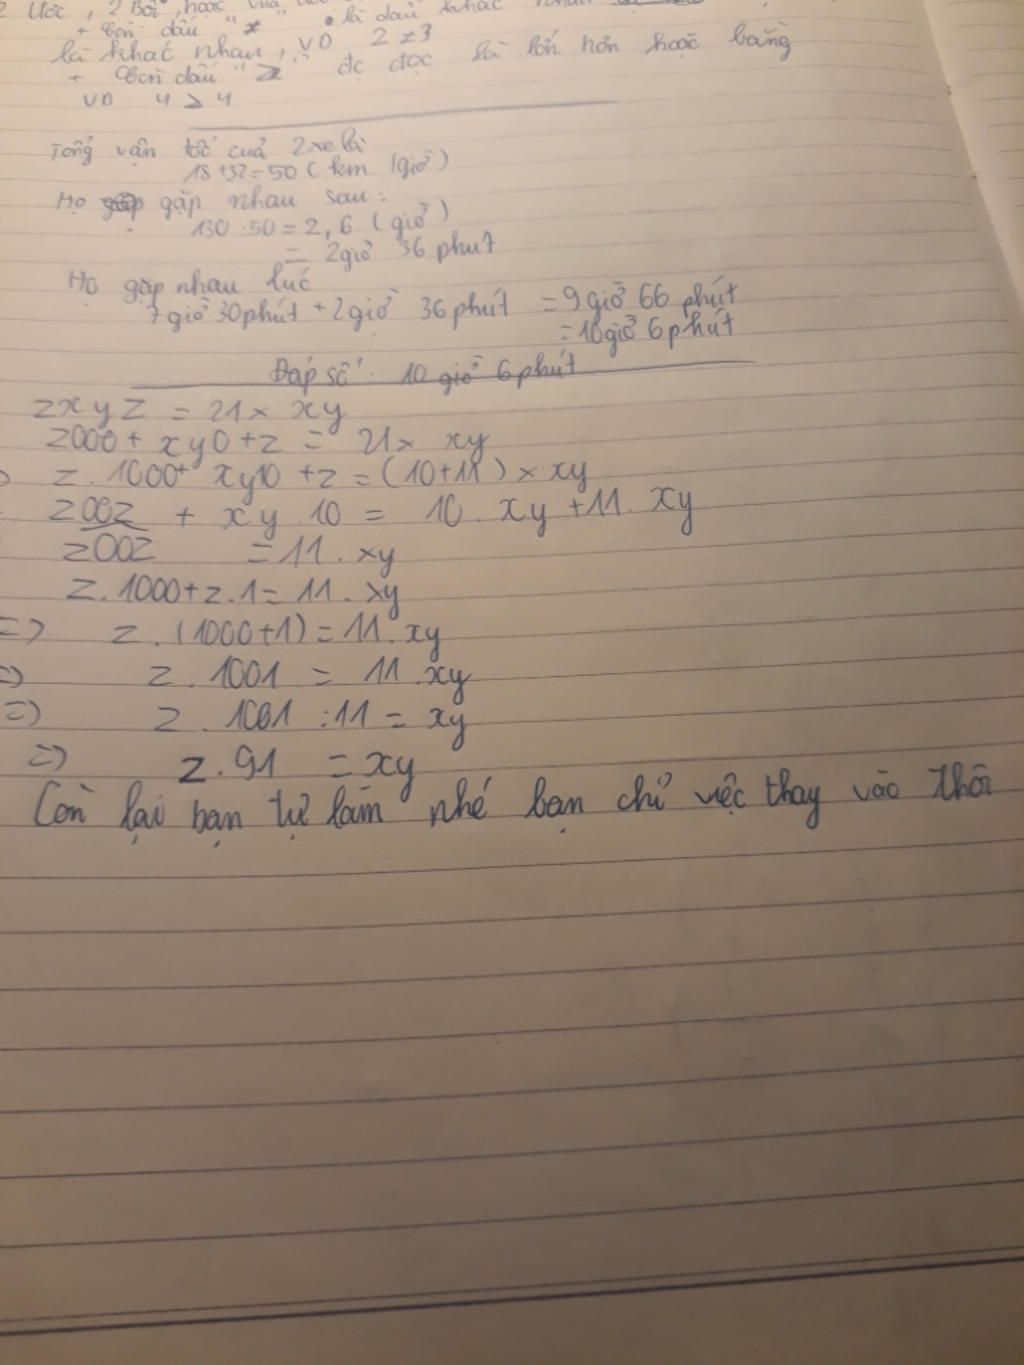 2 Ước, 2 Bội, hoặc
+ Còn dấu "≠" là dấu khác nhau
là khác nhau, VD 2 ≠ 3
+ Còn dấu "≥" đc đọc là lớn hơn hoặc bằng
VD 4 ≥ 4
Tổng vận tốc cuả 2 xe là
18+32=50 (km /giờ)
Họ gặp nhau sau:
130:50=2,6 (giờ)
= 2giờ 36 phut
Họ gặp nhau lúc
7giờ 30phút + 2giờ 36 phút = 9giờ 66 phút
= 10giờ 6phút
Đáp số: 10 giờ 6phút
zxyz = 21 × xy
z000 + xy0 + z = 21 × xy
z.1000 + xy10 + z = (10+11) × xy
z00z + xy 10 = 10. xy + 11. xy
z00z = 11. xy
z.1000 + z.1 = 11. xy
=> z.(1000+1) = 11. xy
=> z. 1001 = 11. xy
=> z. 1001 : 11 = xy
=> z.91 = xy
Còn lại bạn tự làm nhé bạn chỉ việc thay vào thôi